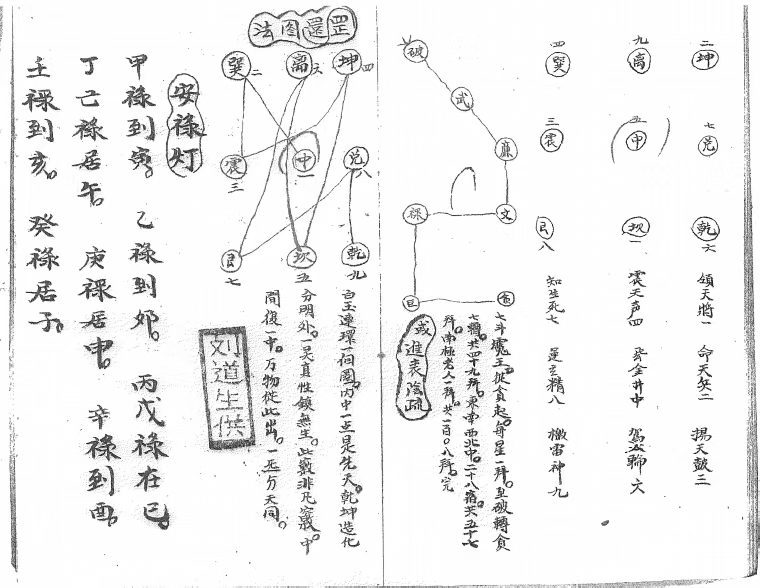 二 坤 七 兑 乾 六
領天將一 命天兵二 揚天鼓三
九 离 五 中 坎 一
震天声四 至金井中 駕火輪六
四 巽 三 震 艮 八
知生死七 運玄精八 檄雷神九
破 武 廉 文 禄 巨 貪
或進表陰疏
七斗魔王從貪起。每星一拜。至破轉貪
七轉。共四十九拜。東南西北中。二十八宿。共五十七
拜。南極老人一拜。共一百〇八拜。完
罡還图法
坤 四 离 六 巽 二
兑 八 中 一 震 三
乾 九 坎 五 艮 七
白玉連環一個圈。丙中一点是先天。乾坤造化
分明外。一灵真性鎮無生。此竅非凡竅。中
間復一中。万物從此出。一炁分天同。
刘道生供
安禄灯
甲禄到寅。 乙禄到卯。 丙戊禄在巳。
丁己禄居午。 庚禄居申。 辛禄到酉。
壬禄到亥。 癸禄居子。